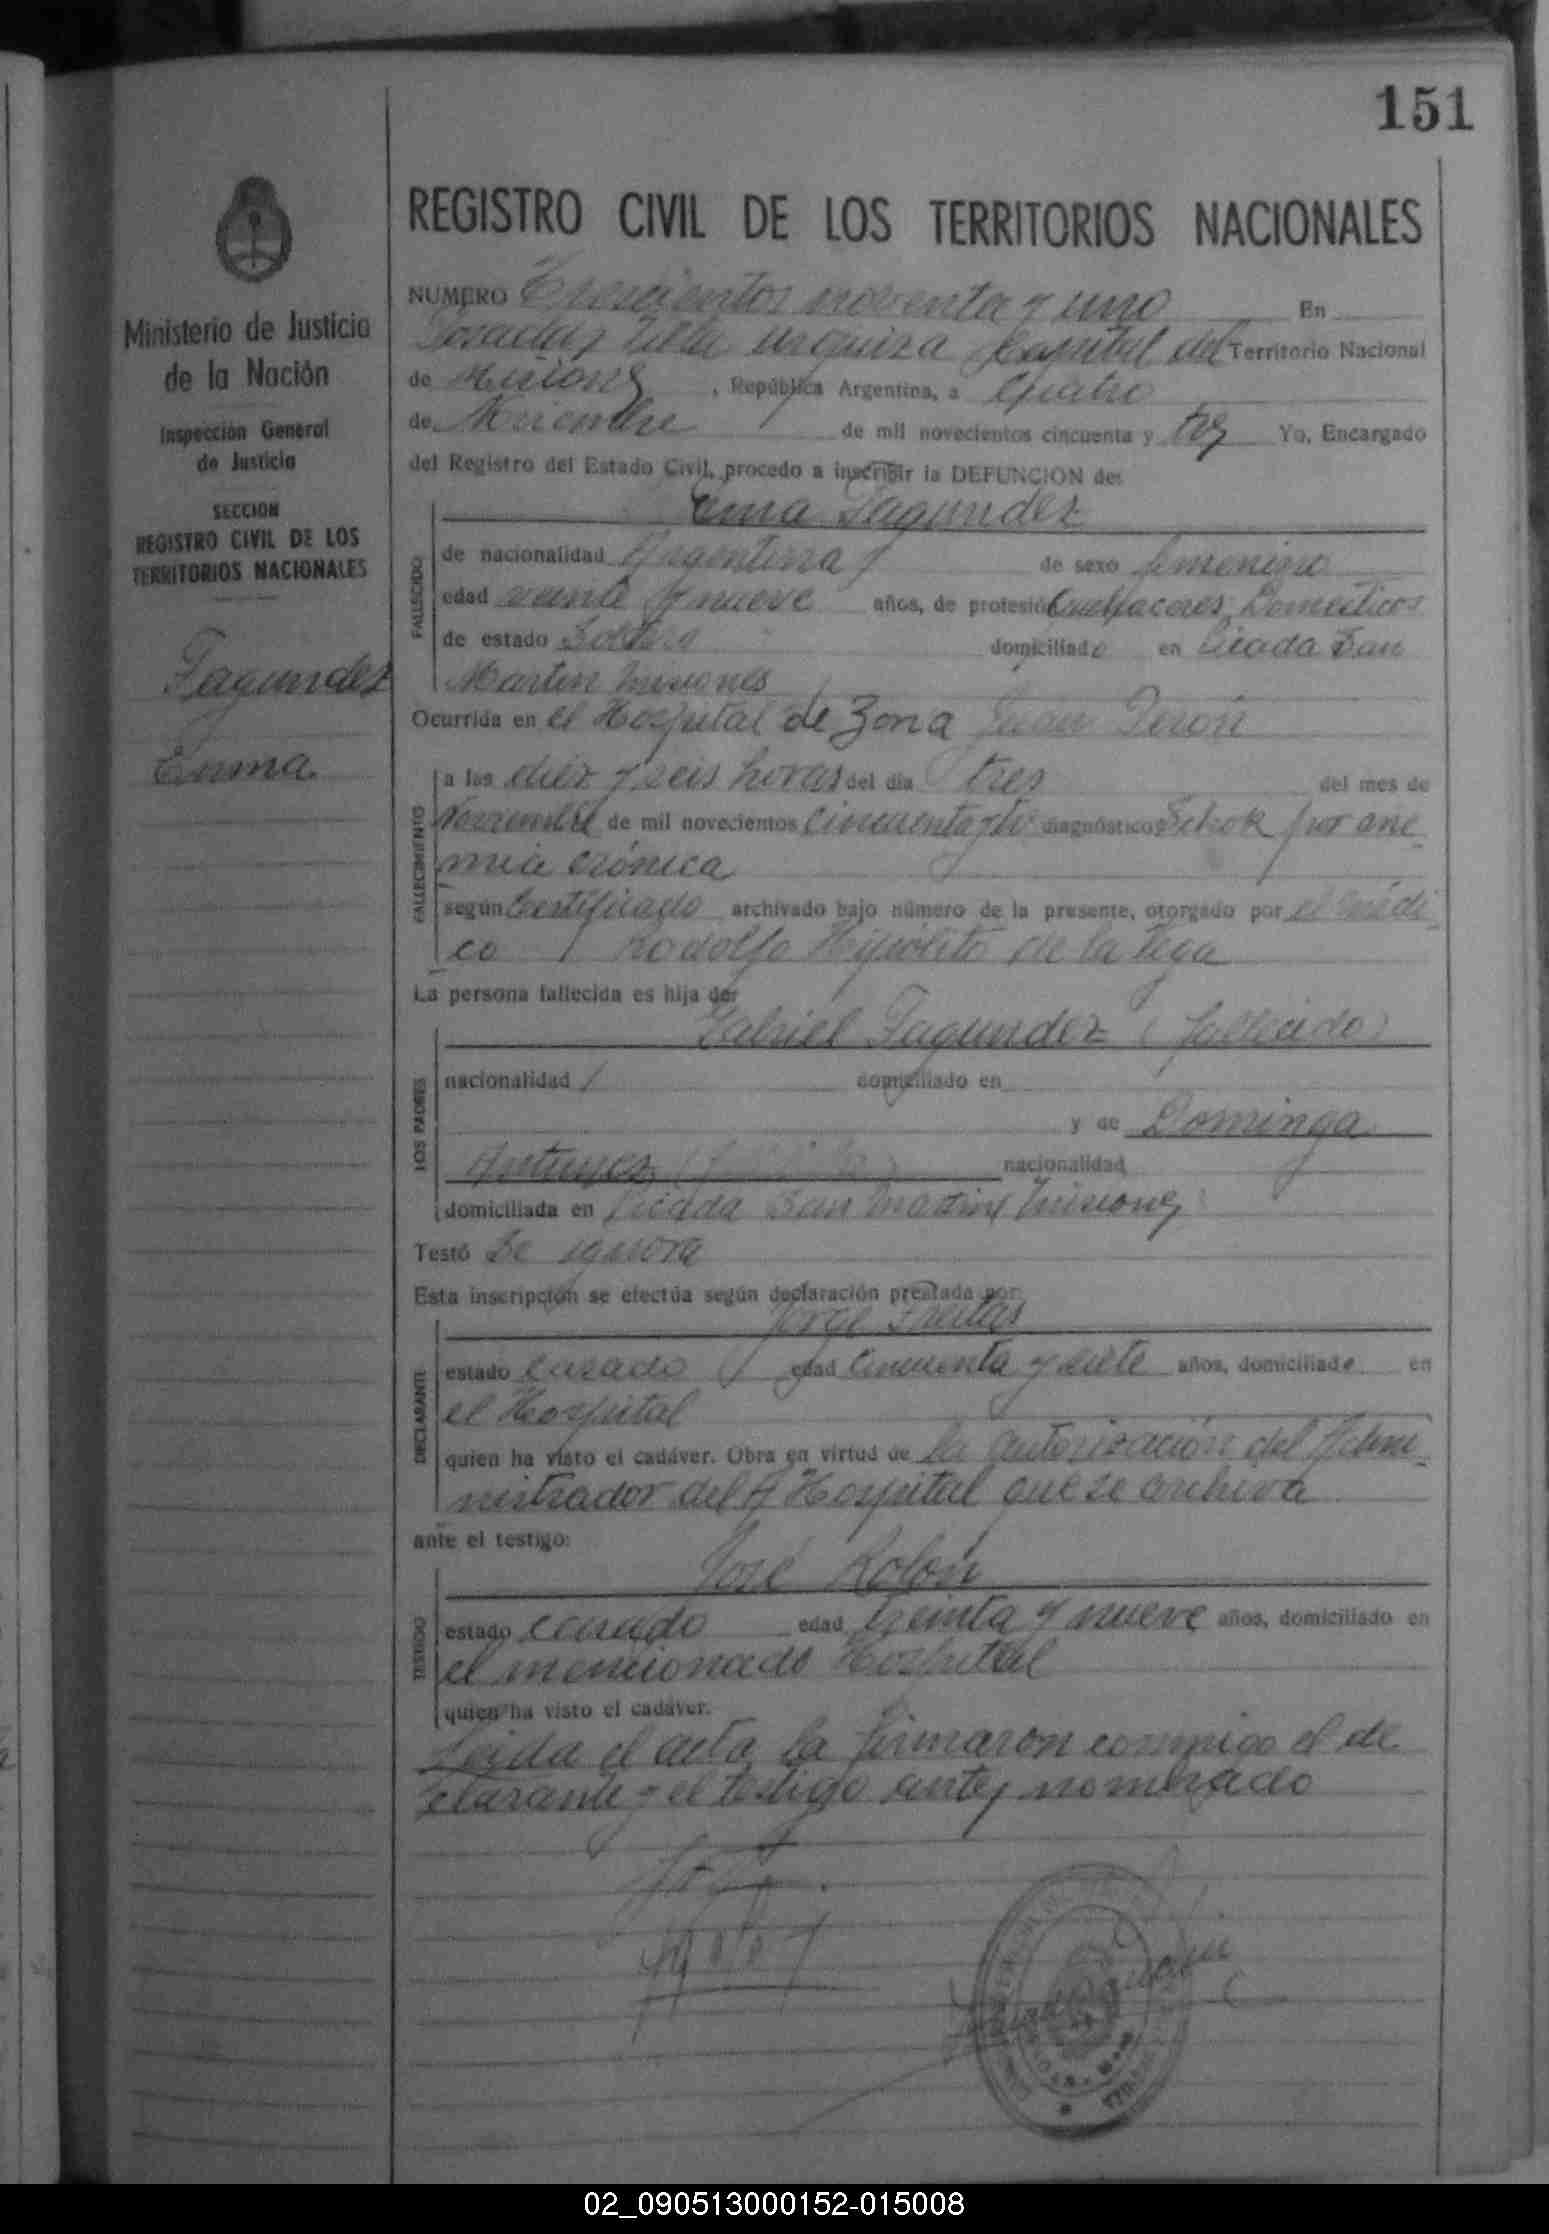 151
Ministerio de Justicia
de la Nación
Inspección General
de Justicia
SECCION
REGISTRO CIVIL DE LOS
TERRITORIOS NACIONALES
Fagundez
Enma
REGISTRO CIVIL DE LOS TERRITORIOS NACIONALES
NUMERO Trescientos noventa y uno En
Posadas, Villa Urquiza Capital del Territorio Nacional
de Misiones, República Argentina, a Cuatro
de Noviembre de mil novecientos cincuenta y tres Yo, Encargado
del Registro del Estado Civil, procedo a inscribir la DEFUNCION de:
Enma Fagundez
FALLECIDO
de nacionalidad Argentina de sexo femenino
edad veinte y nueve años, de profesión Quehaceres Domesticos
de estado Soltera domiciliado en Picada San
Martin Misiones
Ocurrida en el Hospital de Zona Juan Perón
FALLECIMIENTO
a las diez y seis horas del día tres del mes de
Noviembre de mil novecientos cincuenta y tres diagnóstico: Schok por ane-
mia crónica
según Certificado archivado bajo número de la presente, otorgado por el médi-
co Rodolfo Hipólito de la Vega
La persona fallecida es hija de:
LOS PADRES
Gabriel Fagundez (fallecido)
nacionalidad domiciliado en
y de Dominga
Antunes nacionalidad
domiciliada en Picada San Martin Misiones
Testó Se ignora
Esta inscripción se efectúa según declaración prestada por:
DECLARANTE
Jorge Freitas
estado casado edad cincuenta y siete años, domiciliado en
el Hospital
quien ha visto el cadáver. Obra en virtud de la autorización del Admi-
nistrador del Hospital que se archiva
ante el testigo:
TESTIGO
José Rolón
estado casado edad treinta y nueve años, domiciliado en
el mencionado Hospital
quien ha visto el cadáver.
Leida el acta la firmaron conmigo el de-
clarante y el testigo antes nombrado
02_090513000152-015008